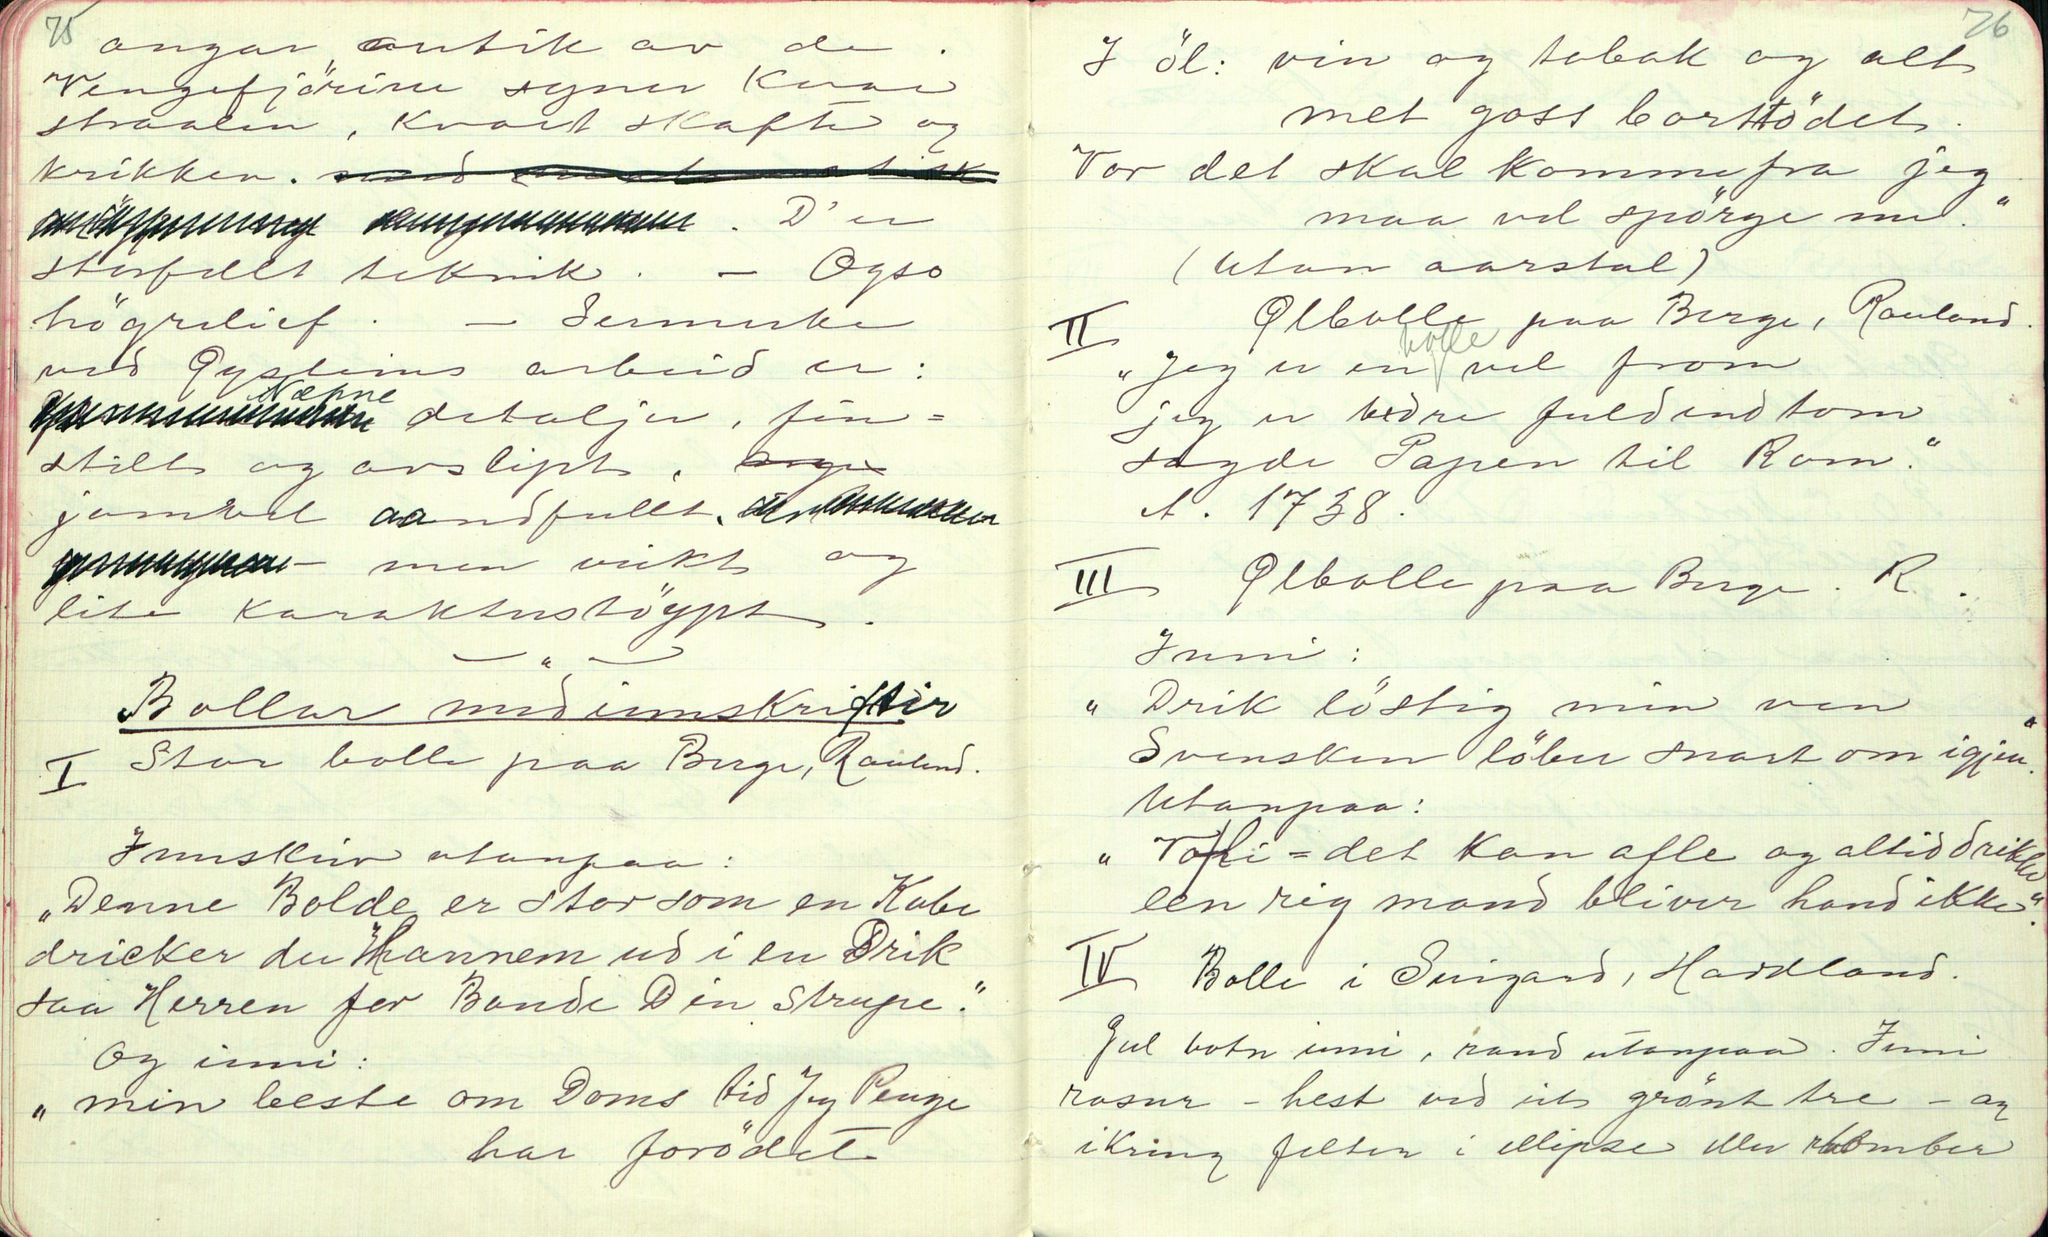 75
angar antik av de .
Vengefjörine syner kvar
straalen, kvart skaft og
krikken.
. D'er
storfelt teknik. – Ogso
högrelief. – Sermerke
ved Øysteins arbeid er:
Næpne detaljer, fin=
stilt og avslipt,
jamvel aandfullt,
– men veikt og
lite karakterstöypt.
– " –
Bollar med innskrifter
I Stor bolle paa Berge, Rauland.
Innskriv utanpaa:
„Denne Bolde er stor som en Kube
dricker du Hannem ud i en Drik
saa Herren for Bande Din Strupe."
Og inni:
„min beste om Doms tid Jeg Penge
har forödet
76
I öl: vin og tobak og alt
met goss bortödet.
Vor det skal komme fra jeg
maa vel spörge nu."
(Utan aarstal)
II Ølbolle paa Berge, Rauland.
„Jeg er en bolle vel from
jeg er bedre fuld end tom
sagde Papen til Rom."
A. 1738.
III Ølbolle paa Berge. R.
Inni:
„Drik löstig min ven
Svensken löber snart om igjen".
Utanpaa:
„ = det kan afle og altid drikke
een rig mand bliver hand ikke".
IV Bolle i , Hovdland.
Gul botn inni, rand utanpaa. Inni
rosur – hest ved eit grönt tre – og
ikring felter i ellipse eller romber